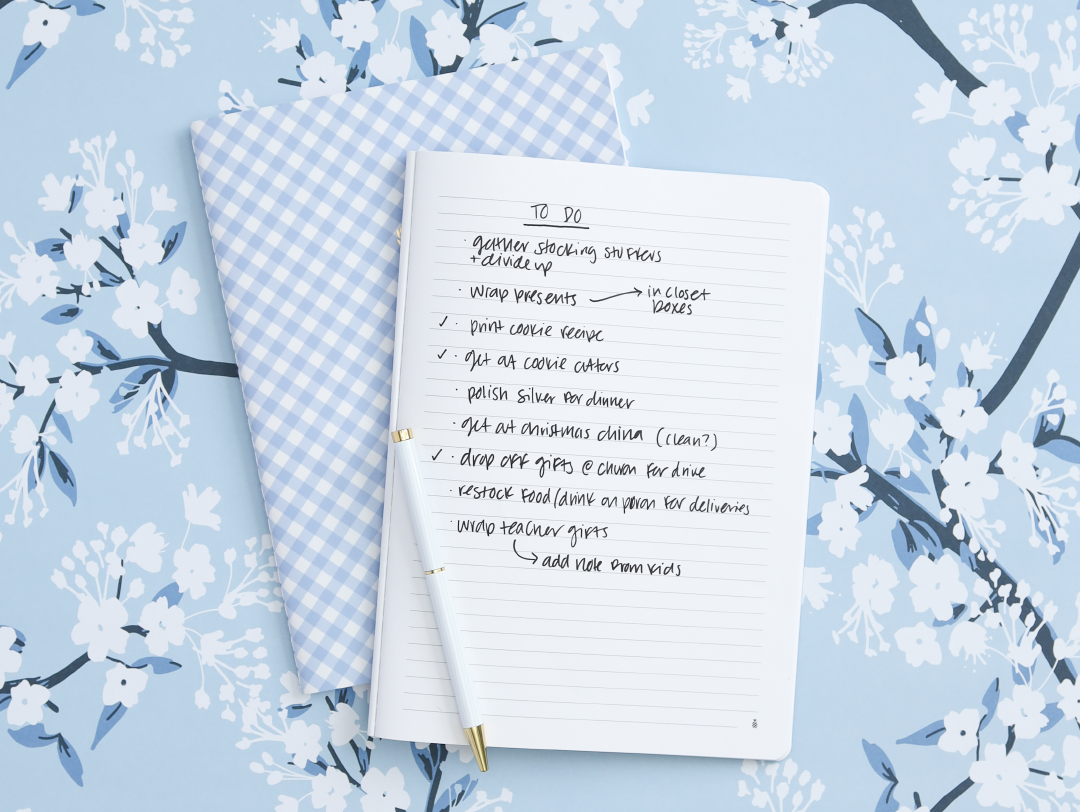 TO DO
· gather stocking stuffers
+ divide up
· wrap presents → in closet
boxes
✓ · print cookie recipe
✓ · get out cookie cutters
· polish silver for dinner
· get out christmas china (clean?)
✓ · drop off gifts @ church for drive
· restock food/drink on porch for deliveries
· wrap teacher gifts
↳ add note from kids